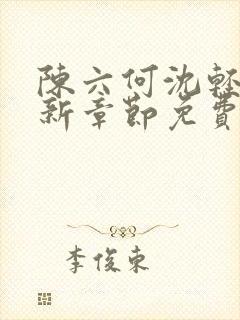 陳六何沈輕
新章節免費
李俊東